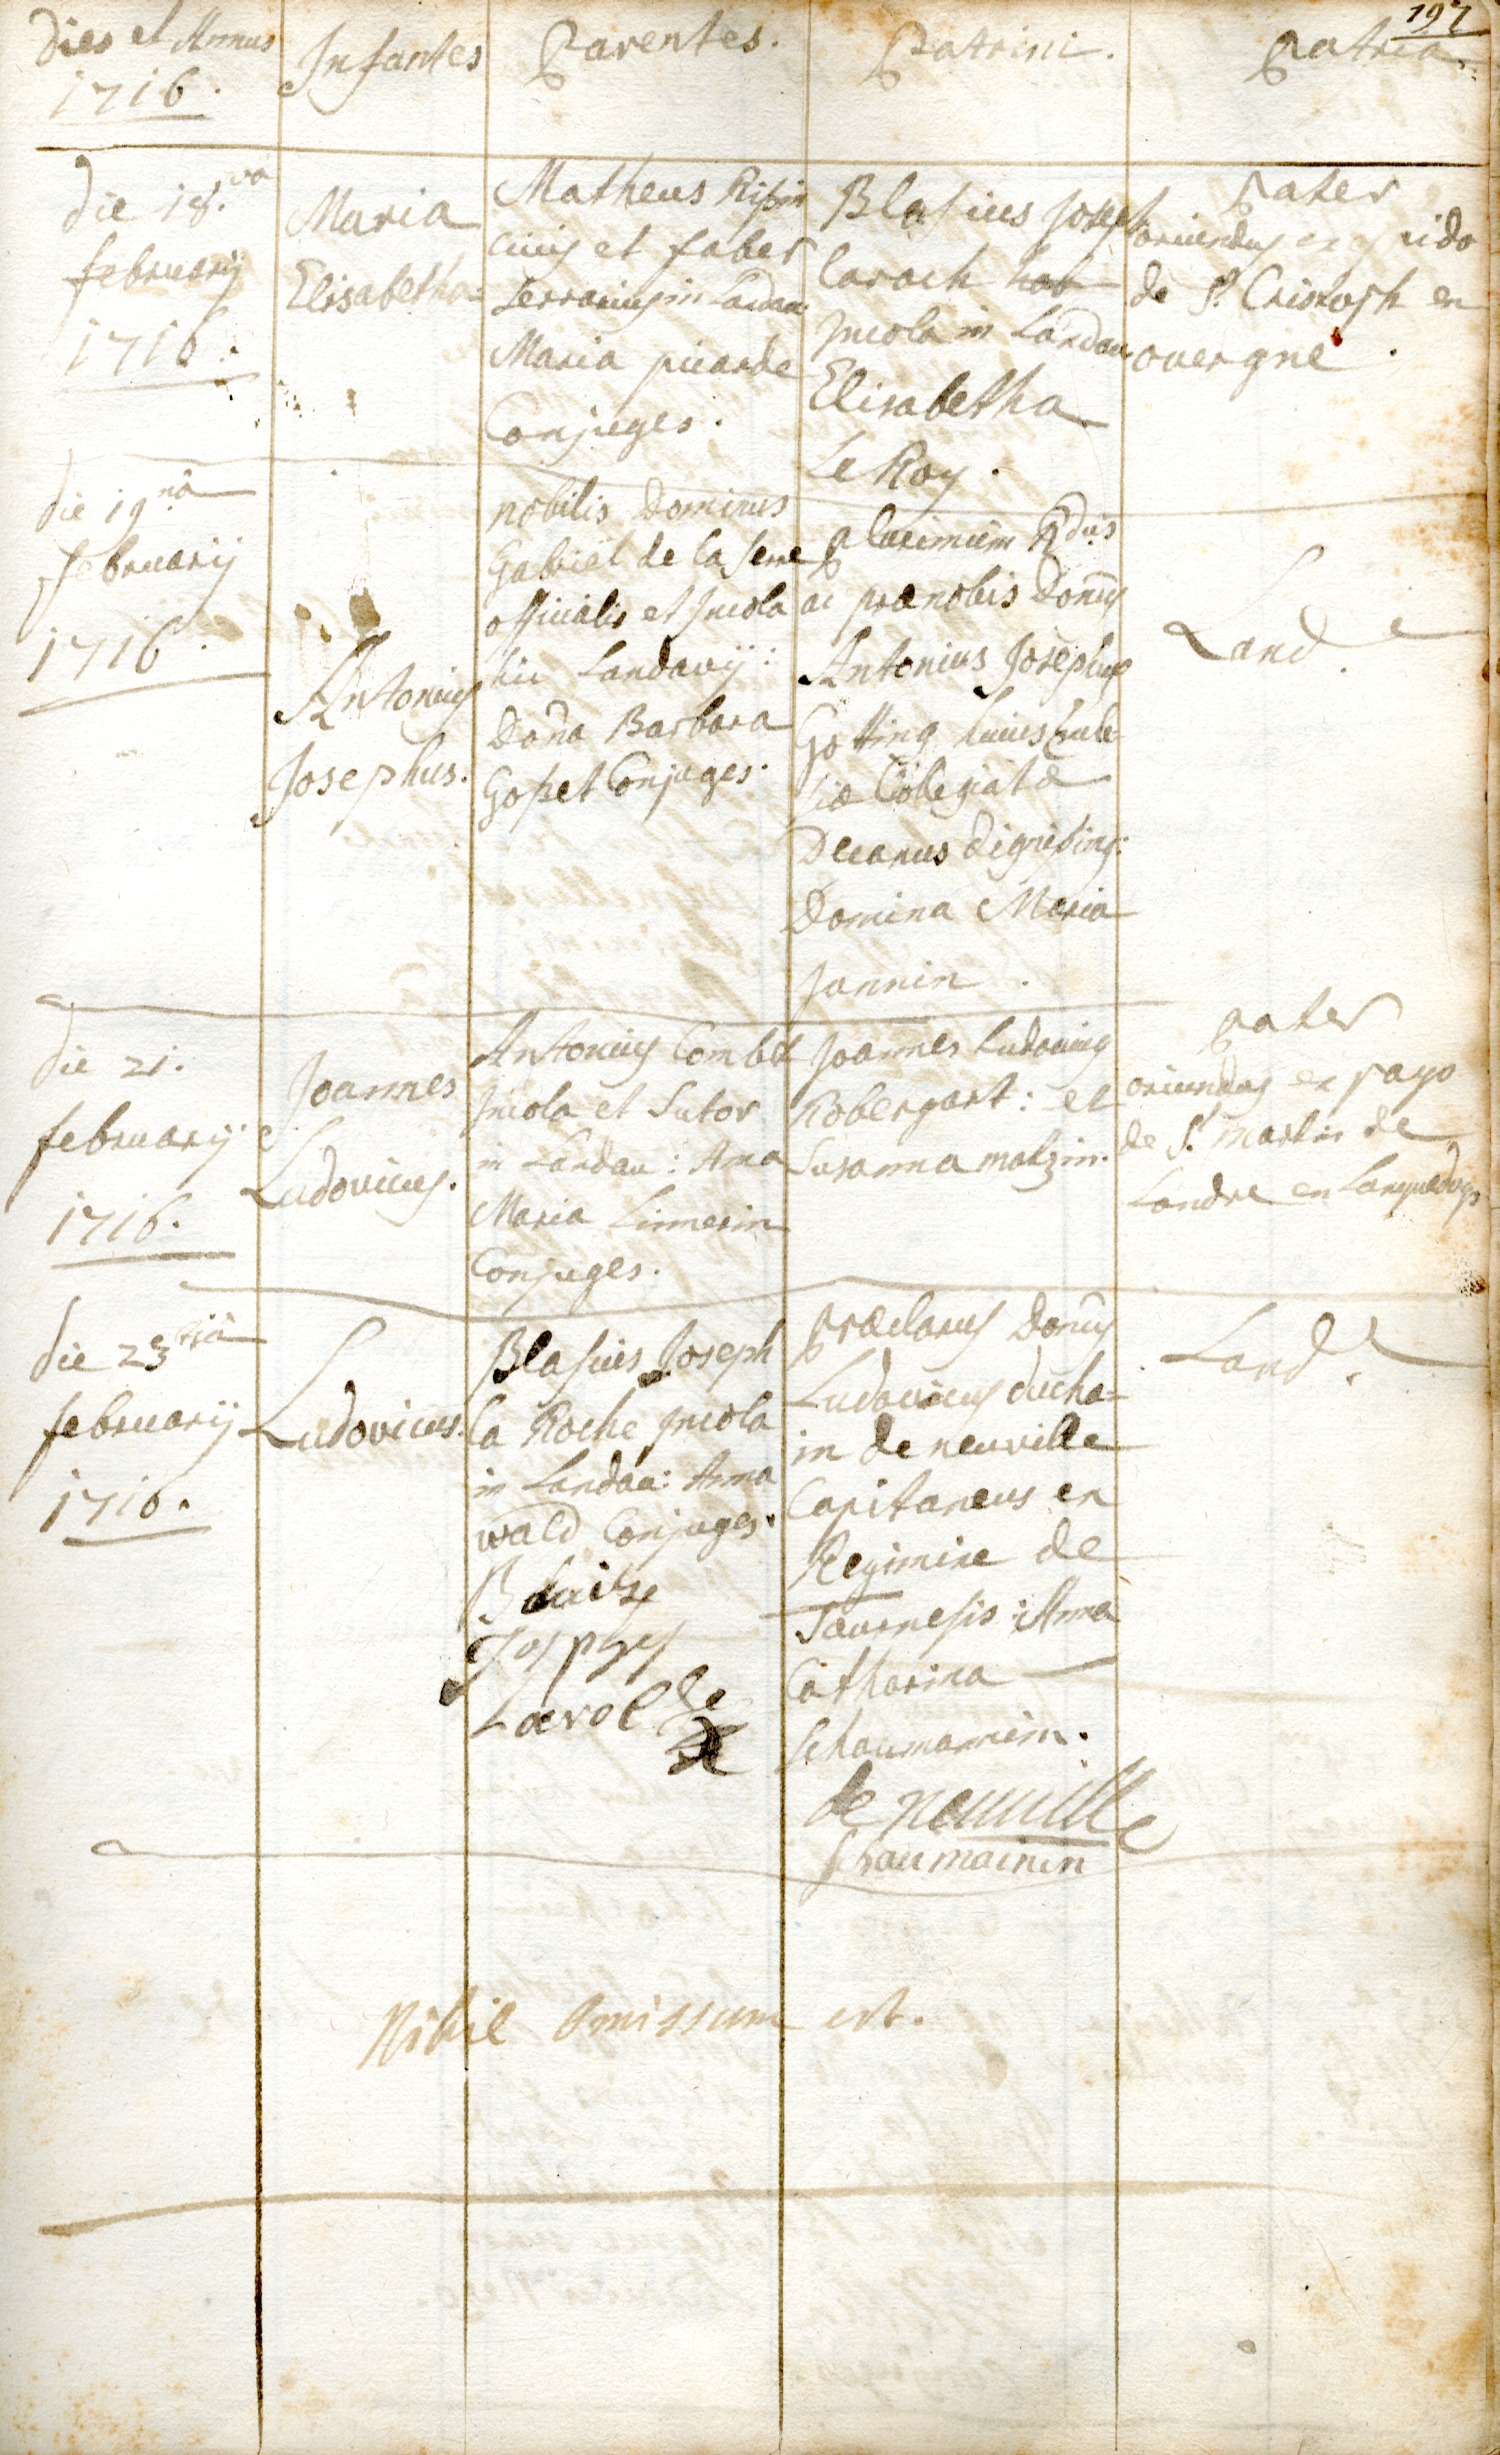 197
Dies et Annus
1716.
Infantes
Parentes.
Patrini.
Patria.
die 18.va
february
1716.
Maria
Elisabetha
Matheus
civis et faber
serrarius in Landau
Maria picarde
Conjuges.
Blasius Joseph
laroch
Incola in Landau
Elisabetha
Le Roy.
pater
oriundus ex
de St. Cristoph en
overgne.
die 19na
february
1716.
Antonius
Josephus.
nobilis Dominus
Gabriel de la
officialis et Incola
hic Landavij:
Dona Barbara
Goset Conjuges.
plurimum Rdus
ac prænobis Donus
Antonius Josephus
Gotting huius Eccle
siæ Collegiatæ
Decanus dignissimus:
Domina Maria
Jannin.
Land.
die 21.
february
1716.
Joannes
Ludovicus.
Antonius Combet
Incola et Sutor
in Landau: Anna
Maria Linnerin
Conjuges.
Joannes Ludovicus
Robergart: et
Susanna matzin.
pater
oriundus ex pago
de St. martin de
Londre en
die 23tia
february
1716.
Ludovicus.
Blasius Joseph
la Roche Incola
in Landau: Anna
wald Conjuges.
Laroche
præclarus Donus
Ludovicus ducha=
in de neuville
Capitaneus en
Regimine de
Tournesis: Anna
Catharina
Schaumannin.
de neuuille
Land.
Nihil omissum est.